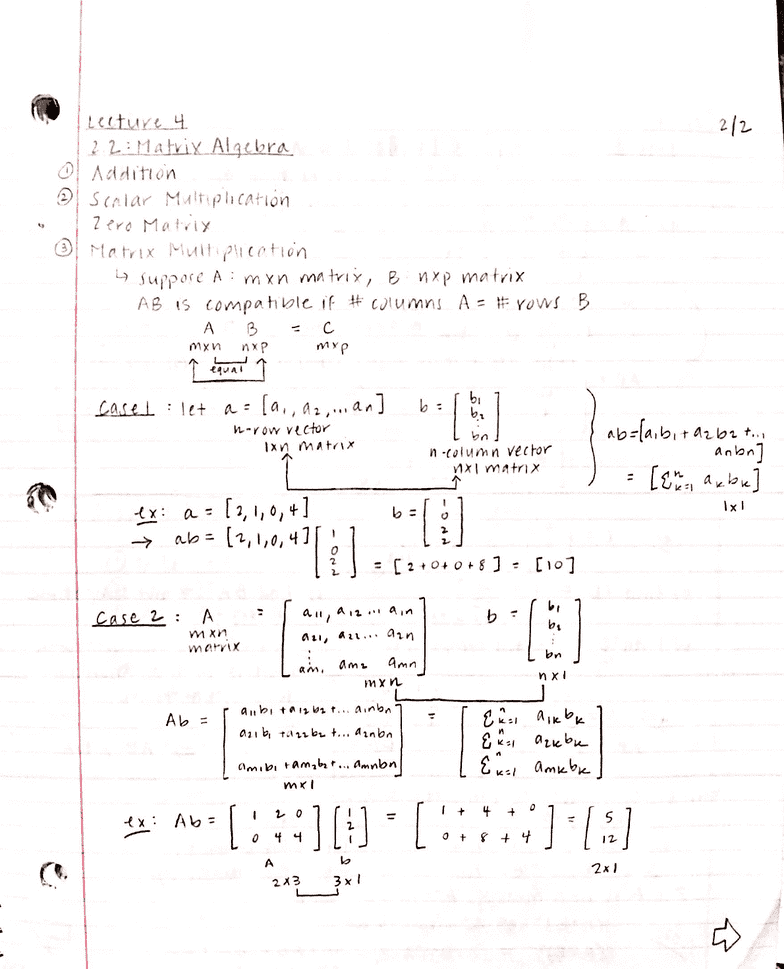 Lecture 4
2/2
2.2: Matrix Algebra
① Addition
② Scalar Multiplication
Zero Matrix
③ Matrix Multiplication
↳ suppose A: mxn matrix, B: nxp matrix
AB is compatible if # columns A = # rows B
A B = C
mxn nxp mxp
equal
Case 1: let a = [a₁, a₂, ... aₙ] b = [b₁ b₂ ⋮ bₙ]
n-row vector
1xn matrix
n-column vector
nx1 matrix
ab=[a₁b₁ + a₂b₂ +...
aₙbₙ]
= [Σⁿₖ₌₁ aₖbₖ]
1x1
ex: a = [2,1,0,4] b = [1 0 2 2]
→ ab = [2,1,0,4] [1 0 2 2] = [2+0+0+8] = [10]
Case 2: A = [a₁₁, a₁₂ ... a₁ₙ b = [b₁
mxn a₂₁, a₂₂ ... a₂ₙ b₂
matrix ⋮ ⋮
aₘ₁ aₘ₂ aₘₙ] bₙ]
mxn nx1
Ab = [a₁₁b₁ + a₁₂b₂ +... a₁ₙbₙ = [Σⁿₖ₌₁ a₁ₖbₖ
a₂₁b₁ + a₂₂b₂ +... a₂ₙbₙ Σⁿₖ₌₁ a₂ₖbₖ
aₘ₁b₁ + aₘ₂b₂ +... aₘₙbₙ] Σⁿₖ₌₁ aₘₖbₖ]
mx1
ex: Ab = [1 2 0 [1 = [1 + 4 + 0 = [5
2
0 4 4] 1] 0 + 8 + 4] 12]
A b
2x3 3x1 2x1